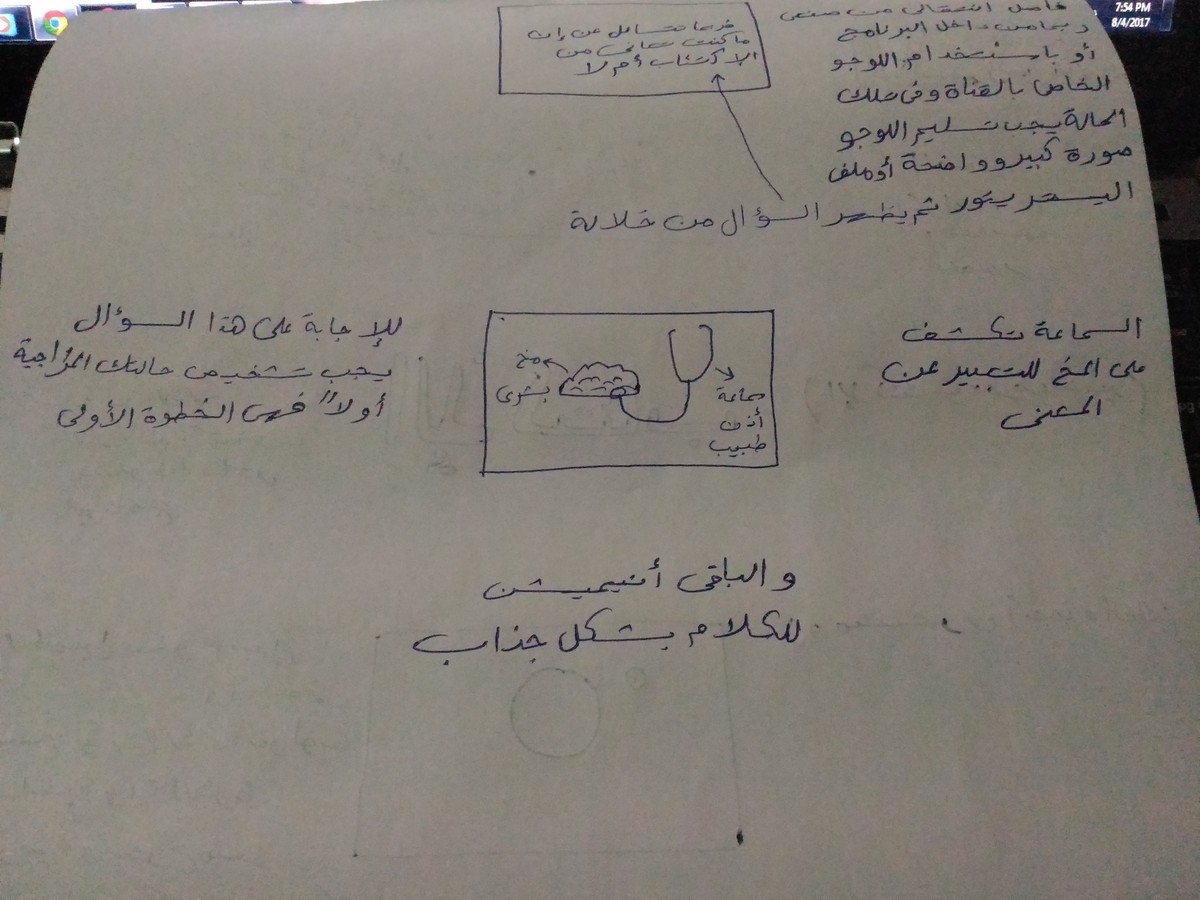 7:54 PM
8/4/2017
فاصل انتقالى من صنعى
ربما من داخل البرنامج
أو باستخدام اللوجو
الخاص بالقناة وفى تلك
الحالة يجب تسليم اللوجو
صورة كبيرو واضحة أو ملف
اليستريتور ثم يظهر السؤال من خلالة
فربما تتسائل عن إن
ما كنت تعانى من
الاكتئاب أم لا
السماعة تكشف
على المخ للتعبير عن
المعنى
سماعة
أذن
طبيب
مخ
بشرى
للإجابة على هذا السؤال
يجب تشخيص حالتك المزاجية
أولاً فهى الخطوة الأولى
و الباقى أنيميشن
للكلام بشكل جذاب